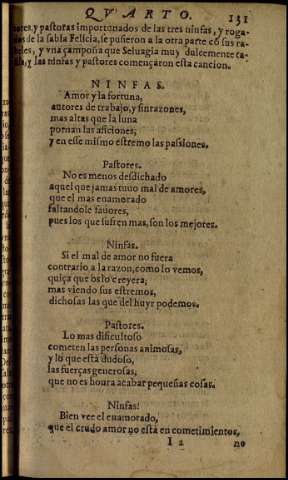 QVARTO. 131
tores, y pastoras importunados de las tres ninfas, y roga-
dos de la sabia Felicia, se pusieron a la otra parte cõ sus ra-
beles, y vna çampoña que Seluagia muy dulcemente ta-
ñia, y las ninfas y pastores començaron esta cancion.
NINFAS.
Amor y la fortuna,
autores de trabajo, y sinrazones,
mas altas que la luna
pornan las aficiones,
y en esse mismo estremo las passiones.
Pastores.
No es menos desdichado
aquel que jamas tuuo mal de amores,
que el mas enamorado
faltandole fauores,
pues los que sufren mas, son los mejores.
Ninfas.
Si el mal de amor no fuera
contrario a la razon, como lo vemos,
quiça que os lo creyera,
mas viendo sus estremos,
dichosas las que del huyr podemos.
Pastores.
Lo mas dificultoso
cometen las personas animosas,
y lo que està dudoso,
las fuerças generosas,
que no es honra acabar pequeñas cosas.
Ninfas.
Bien vee el enamorado,
que el crudo amor no està en cometimientos,
I 2 no